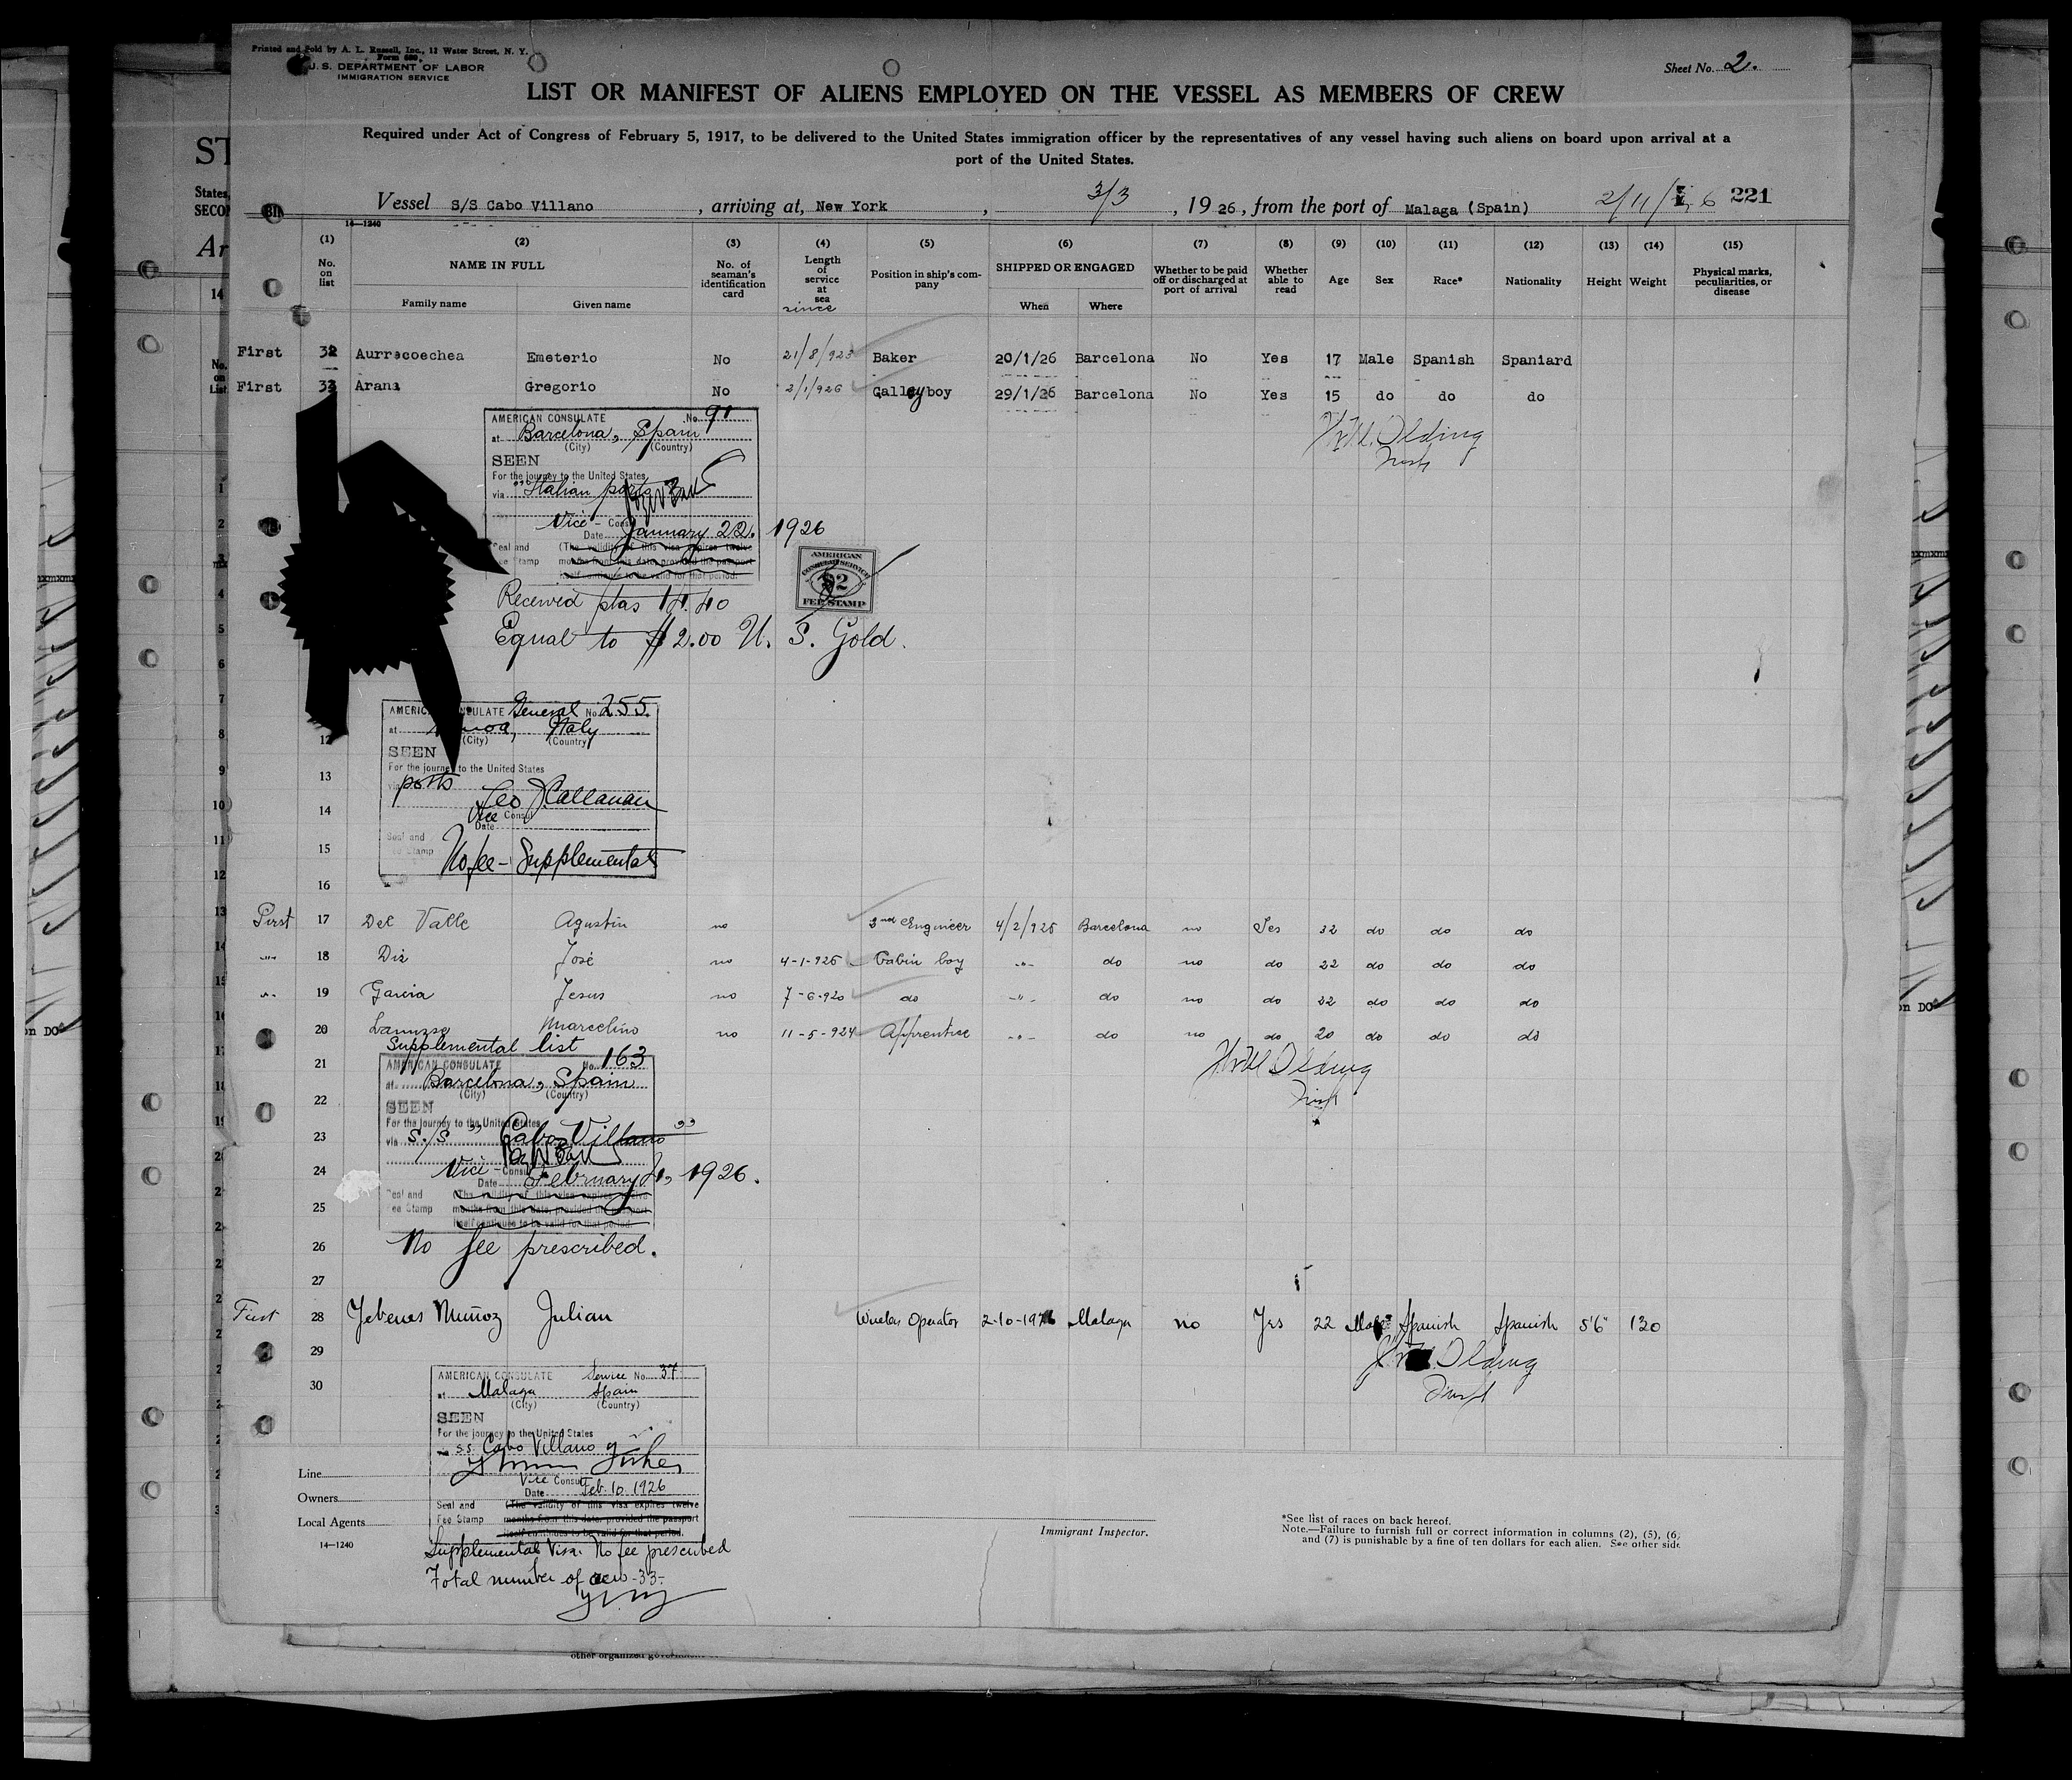 Printed and Sold by A. L. Russell, Inc., 12 Water Street, N. Y.
Form 680
U. S. DEPARTMENT OF LABOR
IMMIGRATION SERVICE
Sheet No. 2.
LIST OR MANIFEST OF ALIENS EMPLOYED ON THE VESSEL AS MEMBERS OF CREW
Required under Act of Congress of February 5, 1917, to be delivered to the United States immigration officer by the representatives of any vessel having such aliens on board upon arrival at a
port of the United States.
Vessel S/S Cabo Villano, arriving at, New York, 3/3, 1926, from the port of Malaga (Spain) 221
14—1240
(1) (2) (3) (4) (5) (6) (7) (8) (9) (10) (11) (12) (13) (14) (15)
No. on list NAME IN FULL Family name Given name No. of seaman's identification card Length of service at sea since Position in ship's company SHIPPED OR ENGAGED When Where Whether to be paid off or discharged at port of arrival Whether able to read Age Sex Race* Nationality Height Weight Physical marks, peculiarities, or disease
First 32 Aurrecoechea Emeterio No 21/8/923 Baker 20/1/26 Barcelona No Yes 17 Male Spanish Spaniard
First 33 Arana Gregorio No 2/1/926 Galleyboy 29/1/26 Barcelona No Yes 15 do do do
AMERICAN CONSULATE No. 91
at Barcelona, Spain
(City) (Country)
SEEN
For the journey to the United States
via "Italian ports
Vice-Consul
Date January 22, 1926
Seal and Fee Stamp
(The validity of this visa expires twelve
months from this date, provided the passport
itself continues to be valid for that period.
AMERICAN
CONSULAR SERVICE
$2
FEE STAMP
Received ptas 14.40
Equal to $2.00 U. S. Gold.
AMERICAN CONSULATE General No. 255.
at Genoa, Italy
(City) (Country)
SEEN
For the journey to the United States
via ports
Leo J Callanan
Vice Consul
Date
Seal and Fee Stamp
No fee - Supplemental
12
13
14
15
16
First 17 Del Valle Agustin no 2nd Engineer 4/2/926 Barcelona no Yes 32 do do do
18 Diz José no 4-1-926 Cabin boy -"- do no do 22 do do do
19 Garcia Jesus no 7-6-920 do -"- do no do 22 do do do
20 Marcelino no 11-5-924 Apprentice -"- do no do 20 do do do
Supplemental list
21
AMERICAN CONSULATE No. 163
at Barcelona, Spain
(City) (Country)
22
SEEN
For the journey to the United States
23
via S./S "Cabo Villano"
24
Vice-Consul
Date February 4, 1926.
Seal and Fee Stamp
(The validity of this visa expires twelve
25
months from this date, provided the passport
itself continues to be valid for that period.
26
No fee prescribed.
27
First 28 Yebenes Muñoz Julian Wireless Operator 2-10-1926 Malaga no Yes 22 Male Spanish Spanish 5'6" 130
29
30
AMERICAN CONSULATE Service No. 37
at Malaga Spain
(City) (Country)
SEEN
For the journey to the United States
SS. Cabo Villano
Vice Consul
Date Feb. 10 1926
Seal and Fee Stamp
(The validity of this visa expires twelve
months from this date, provided the passport
itself continues to be valid for that period.
Supplemental Visa. No fee prescribed
Total number of crew -33-
Line
Owners
Local Agents
14—1240
Immigrant Inspector.
*See list of races on back hereof.
Note.—Failure to furnish full or correct information in columns (2), (5), (6)
and (7) is punishable by a fine of ten dollars for each alien. See other side